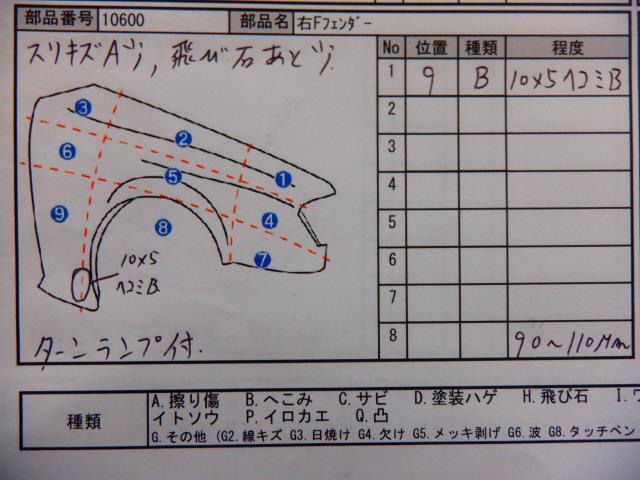 部品番号 10600 部品名 右Fフェンダー
スリキズAツ, 飛び石あとツ.
No 位置 種類 程度
1 9 B 10×5ヘコミB
2
3
4
5
6
7
8 90~110μm
3
2
6
5
1
9
4
8
7
10×5
ヘコミB.
ターンランプ付.
種類
A.擦り傷 B.へこみ C.サビ D.塗装ハゲ H.飛び石 I.
イトソウ P.イロカエ Q.凸
G.その他 (G2.線キズ G3.日焼け G4.欠け G5.メッキ剥げ G6.波 G8.タッチペン